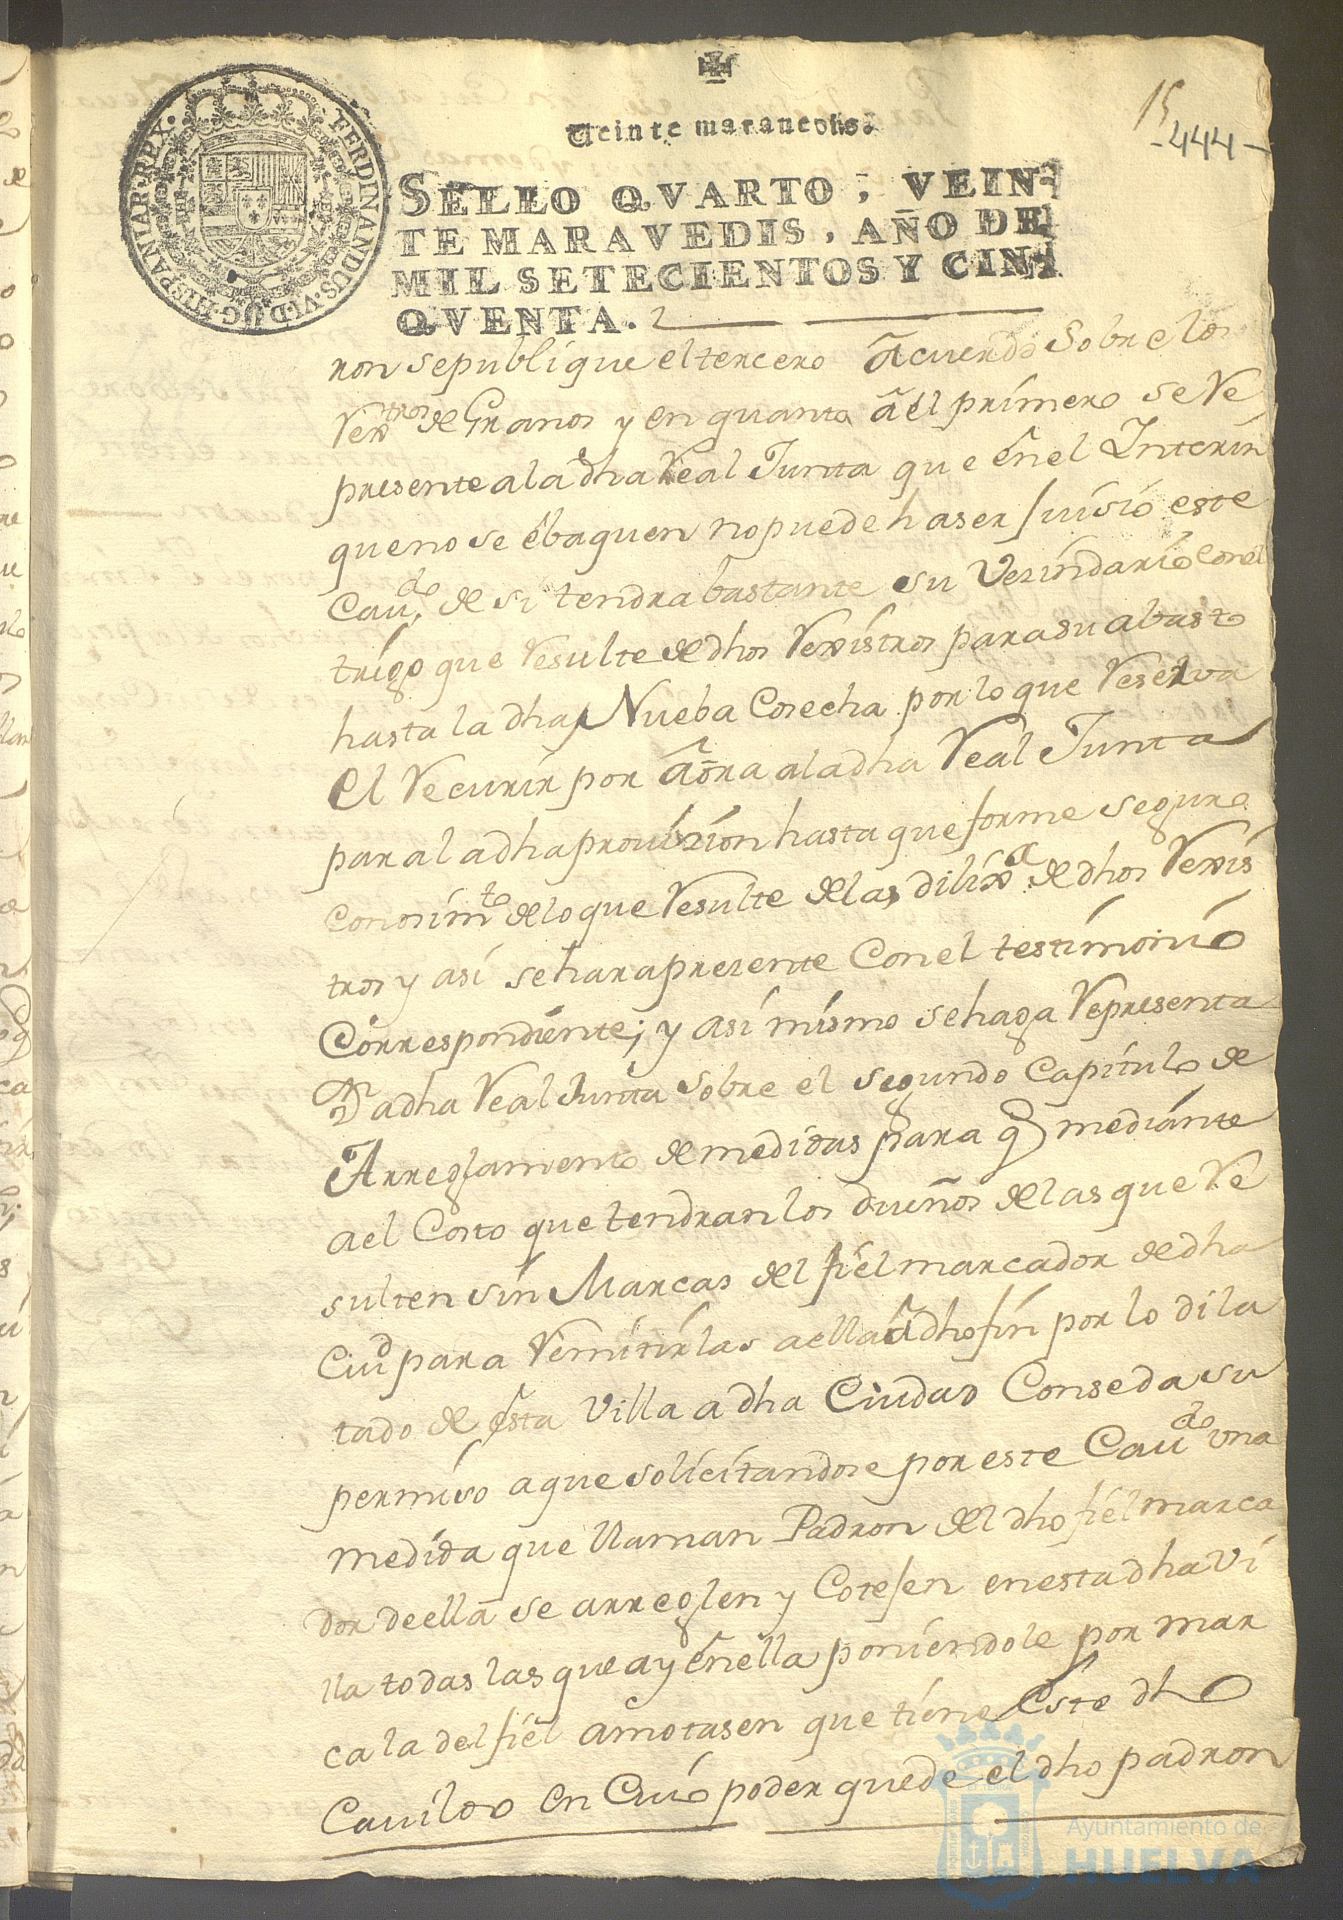 Veinte maravedis.
15
-444-
FERDINANDUS.VI.D.G.HISPANIAR.REX.
SELLO QVARTO, VEIN-
TE MARAVEDIS, AÑO DE
MIL SETECIENTOS Y CIN-
QVENTA.
ron se publique el tercero acuerdo sobre los
Rextros de Granos y en quanto a el primero se Re
presente a la dha Real Junta que en el Interin
que no se ebaquen no puede haser juisio este
Cavdo de si tendra bastante su Vezindario con el
trigo que Resulte de dhos Rexistros para su abasto
hasta la dha Nueba Cosecha por lo que Reserva
el Recurir por aora a la dha Real Junta
para la dha provizion hasta que forme seguro
conosimto de lo que Resulte de las dilixas de dhos Rexis
tros y asi se hara prezente con el testimonio
Correspondiente; y asi mismo se haga Representa
on a dha Real Junta sobre el segundo capitulo de
Arreglamento de medidas para q mediante
a el Costo que tendran los dueños de las que Re
sulten sin Marcas del fiel marcador de dha
Ciud para Remitirlas a ella a dho fin por lo dila
tado de esta Villa a dha Ciudad Conseda su
permiso a que solicitandose por este Cavdo una
medida que llaman Padron del dho fiel marca
dor de ella se arreglen y Cotejen en esta dha Vi
lla todas las que ay en ella poniendole por mar
ca la del fiel amotasen que tiene este dho
Cavildo en Cuio poder quede el dho padron
Ayuntamiento de
HUELVA